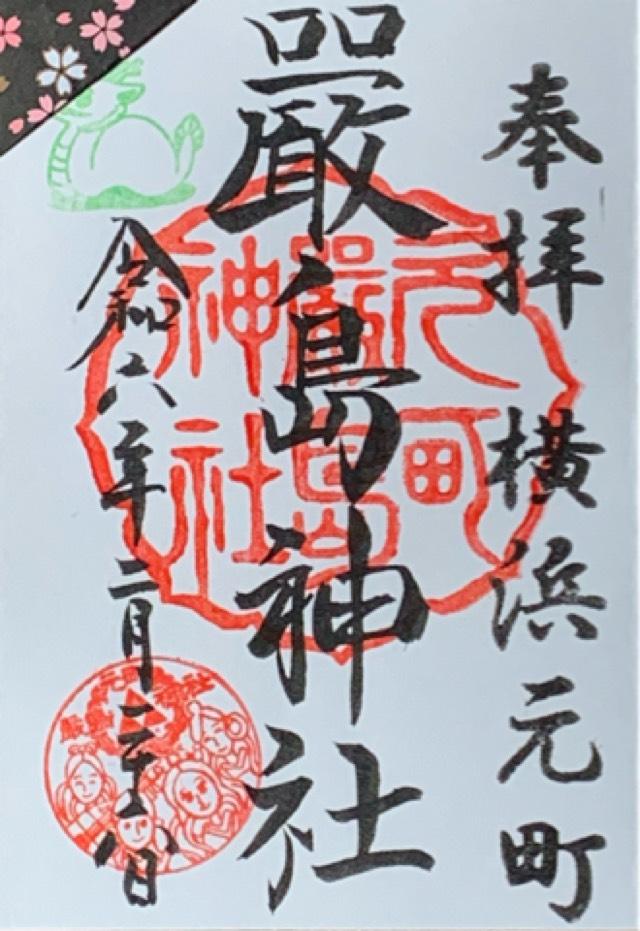 奉拝 横浜元町
嚴島神社
令和六年二月二十八日
元町
嚴島
神社